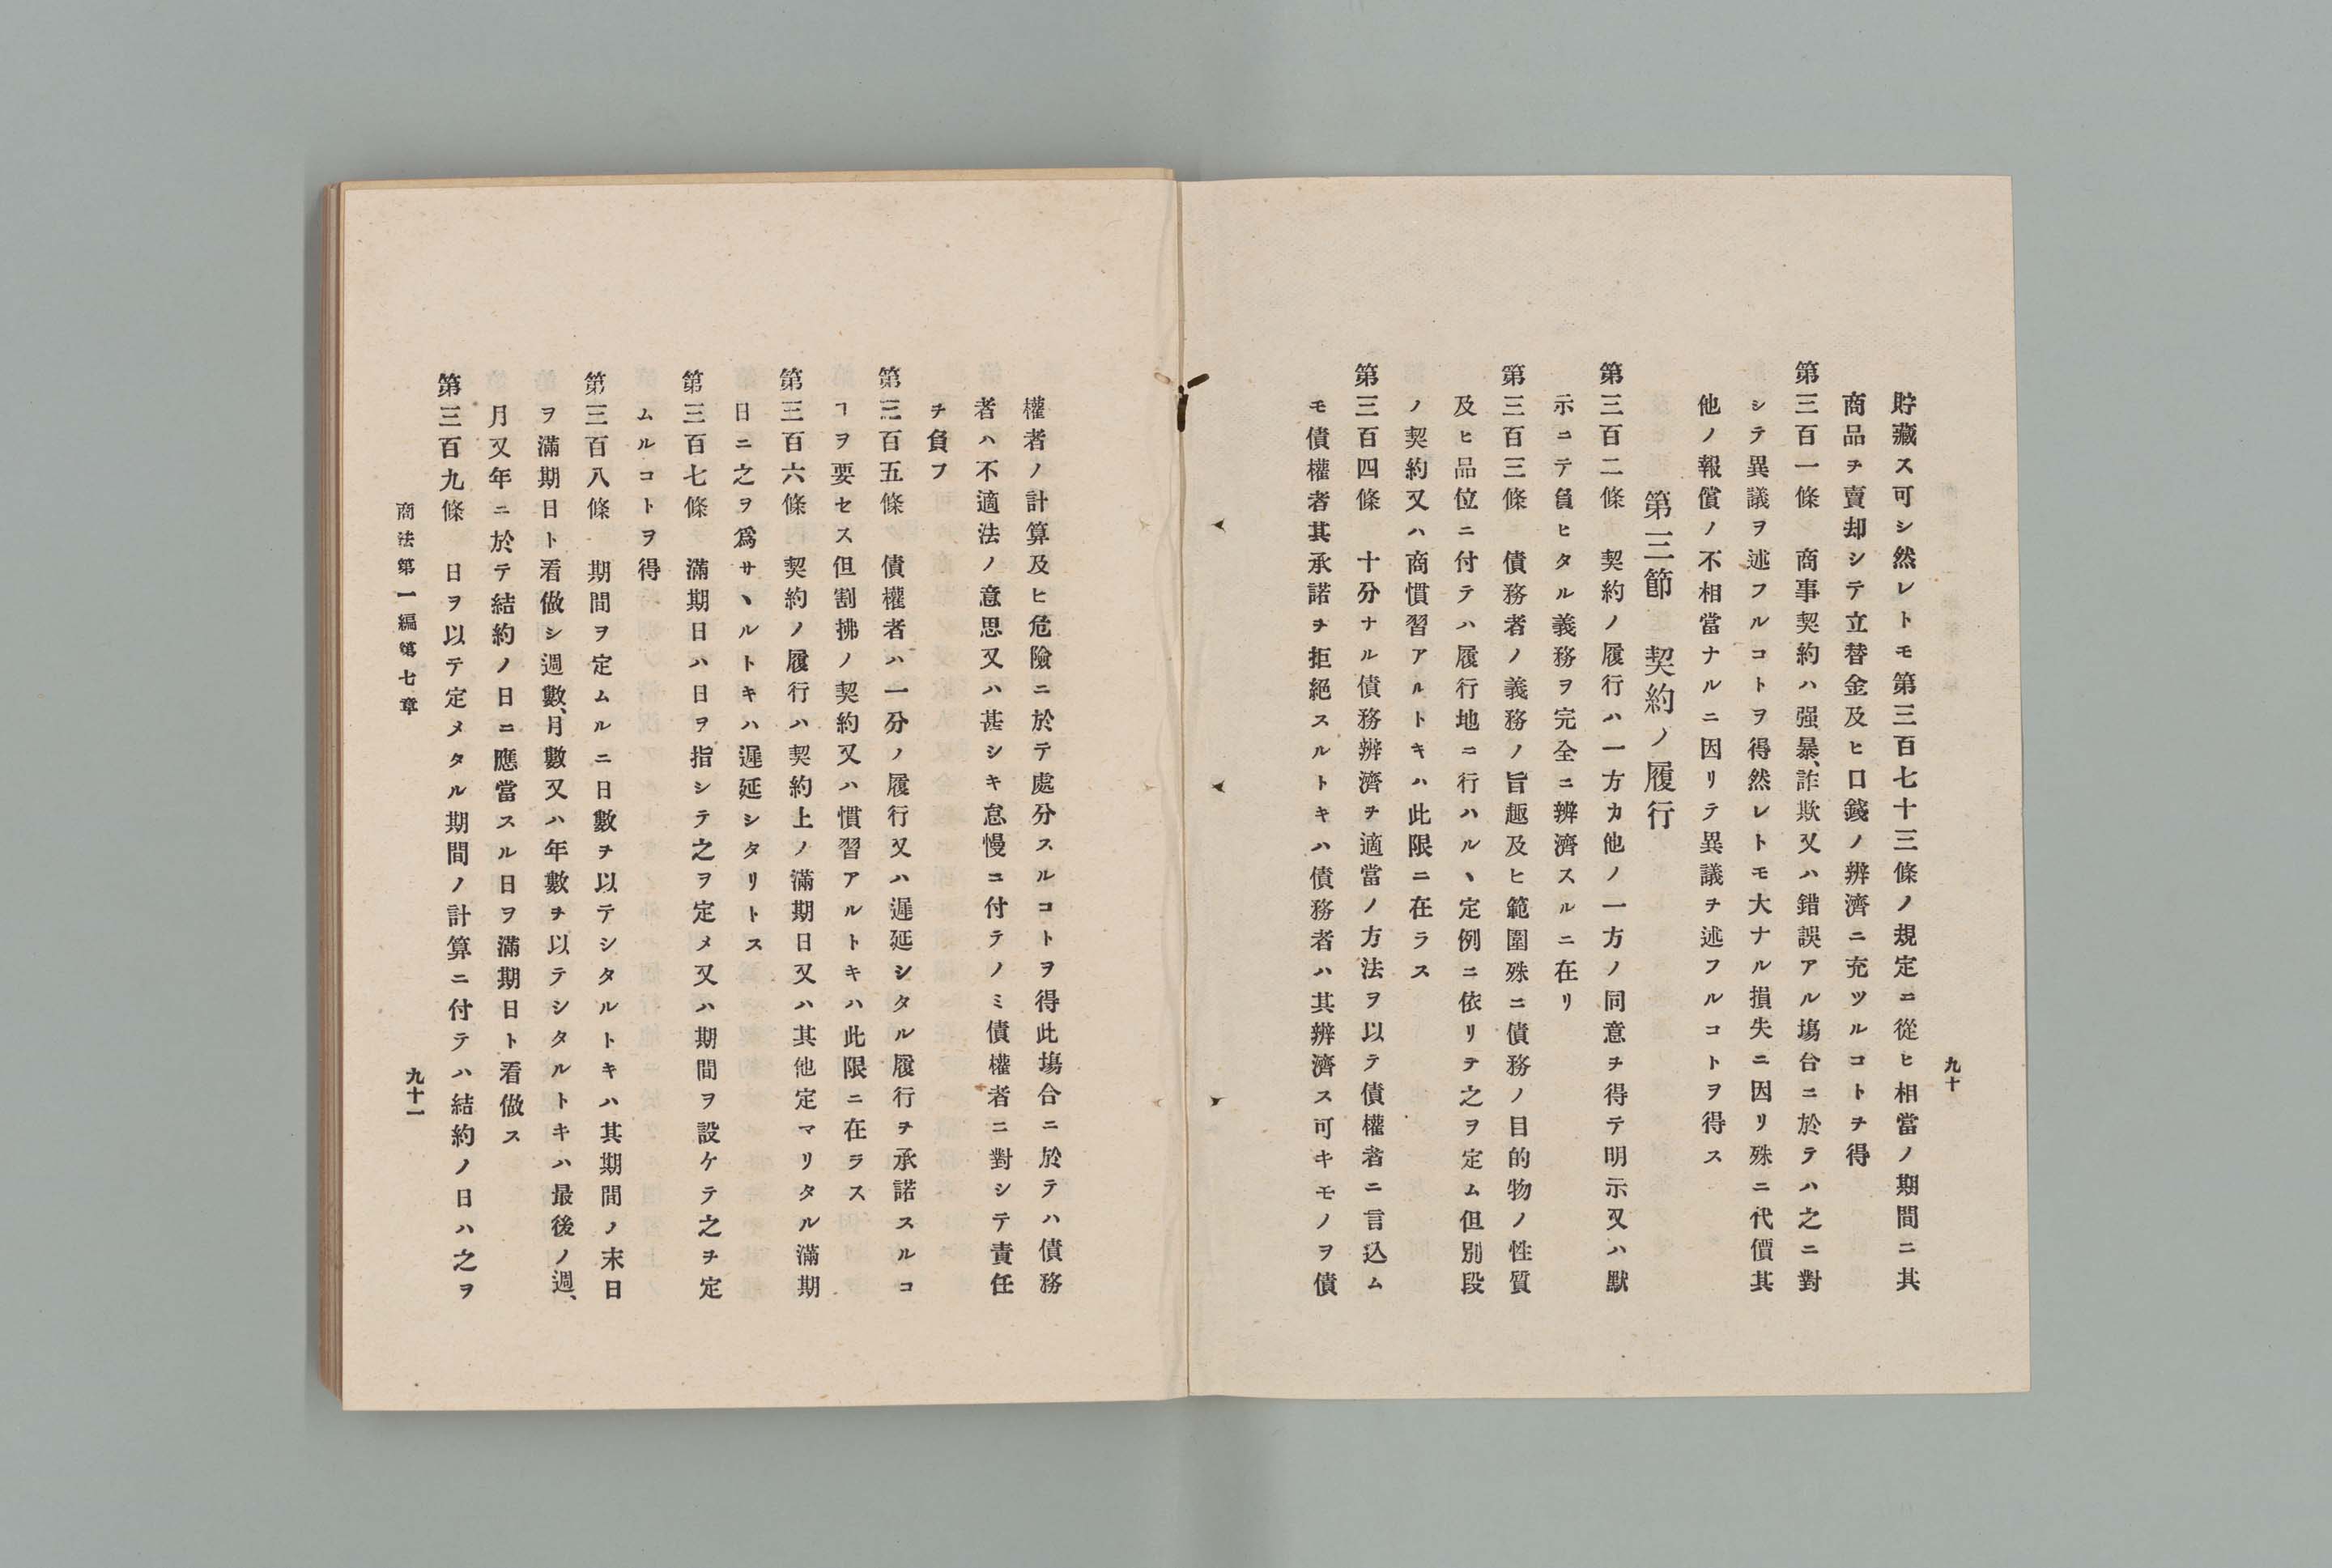 九十
貯藏ス可シ然レトモ第三百七十三條ノ規定ニ從ヒ相當ノ期間ニ其
商品チ賣却シテ立替金及ヒ口錢ノ辨濟ニ充ツルコトチ得
第三百一條　商事契約ハ强暴、詐欺又ハ錯誤アル塲合ニ於テハ之ニ對
シテ異議ヲ述フルコトヲ得然レトモ大ナル損失ニ因リ殊ニ代價其
他ノ報償ノ不相當ナルニ因リテ異議チ述フルコトヲ得ス
第三節　契約ノ履行
第三百二條　契約ノ履行ハ一方カ他ノ一方ノ同意チ得テ明示又ハ默
示ニテ負ヒタル義務ヲ完全ニ辨濟スルニ在リ
第三百三條　債務者ノ義務ノ旨趣及ヒ範圍殊ニ債務ノ目的物ノ性質
及ヒ品位ニ付テハ履行地ニ行ハルヽ定例ニ依リテ之ヲ定ム但別段
ノ契約又ハ商慣習アルトキハ此限ニ在ラス
第三百四條　十分ナル債務辨濟チ適當ノ方法ヲ以テ債權者ニ言込ム
モ債權者其承諾チ拒絕スルトキハ債務者ハ其辨濟ス可キモノヲ債
權者ノ計算及ヒ危險ニ於テ處分スルコトヲ得此塲合ニ於テハ債務
者ハ不適法ノ意思又ハ甚シキ怠慢ニ付テノミ債權者ニ對シテ責任
チ負フ
第三百五條　債權者ハ一分ノ履行又ハ遲延シタル履行チ承諾スルコ
ヿヲ要セス但割拂ノ契約又ハ慣習アルトキハ此限ニ在ラス
第三百六條　契約ノ履行ハ契約上ノ滿期日又ハ其他定マリタル滿期
日ニ之ヲ爲サヽルトキハ遲延シタリトス
第三百七條　滿期日ハ日ヲ指シテ之ヲ定メ又ハ期間ヲ設ケテ之チ定
ムルコトヲ得
第三百八條　期間ヲ定ムルニ日數チ以テシタルトキハ其期間ノ末日
ヲ滿期日ト看做シ週數、月數又ハ年數チ以テシタルトキハ最後ノ週、
月又年ニ於テ結約ノ日ニ應當スル日ヲ滿期日ト看做ス
第三百九條　日ヲ以テ定メタル期間ノ計算ニ付テハ結約ノ日ハ之ヲ
商法第一編第七章
九十一